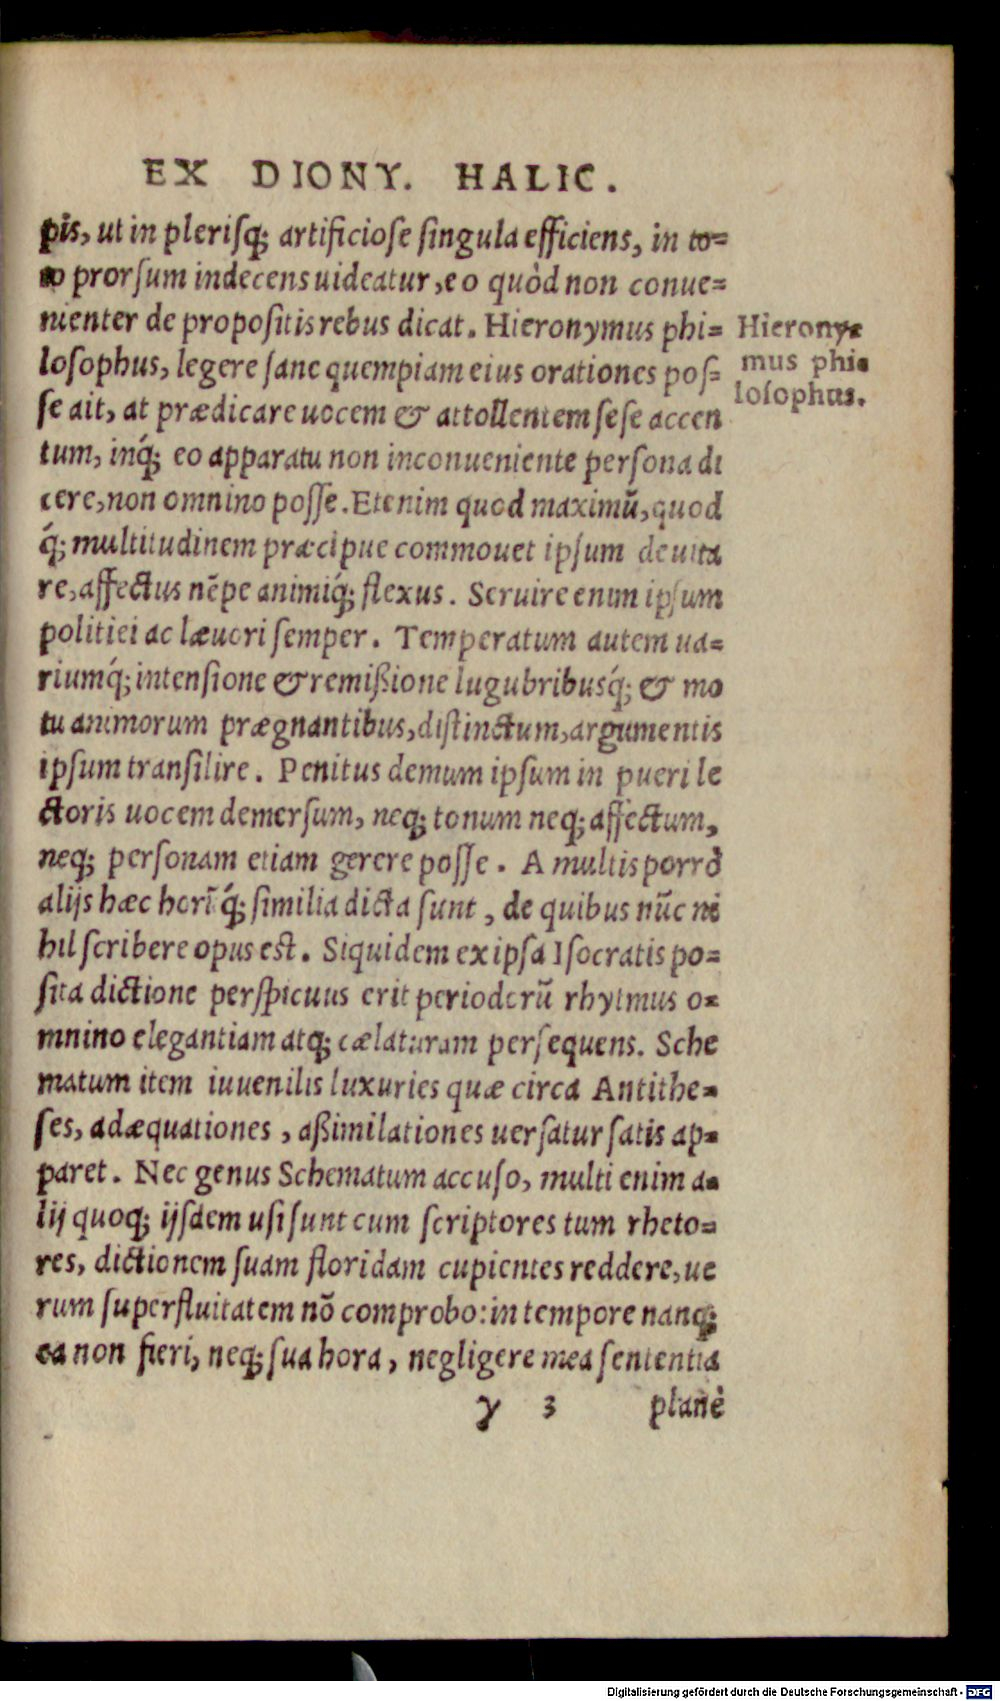 EX DIONY. HALIC.
pis, ut in plerisq; artificiose singula efficiens, in to=
to prorsum indecens uideatur, eo quòd non conue=
nienter de propositis rebus dicat. Hieronymus phi=
losophus, legere sane quempiam eius orationes pos=
se ait, at prædicare uocem & attollentem sese accen
tum, inq́; eo apparatu non inconueniente persona di
cere, non omnino posse. Etenim quod maximũ, quod
q́; multitudinem præcipue commouet ipsum deuita
re, affectus nẽpe animiq́; flexus. Seruire enim ipsum
politiei ac læuori semper. Temperatum autem ua=
riumq́; intensione & remißione lugubribusq́; & mo
tu animorum prægnantibus, distinctum, argumentis
ipsum transilire. Penitus demum ipsum in pueri le
ctoris uocem demersum, neq; tonum neq; affectum,
neq; personam etiam gerere posse. A multis porrò
alijs hæc horĩq́; similia dicta sunt, de quibus nũc ni
hil scribere opus est. Siquidem ex ipsa Isocratis po=
sita dictione perspicuus erit periodorũ rhytmus o=
mnino elegantiam atq; cælaturam persequens. Sche
matum item iuuenilis luxuries quæ circa Antithe=
ses, adæquationes, aßimilationes uersatur satis ap=
paret. Nec genus Schematum accuso, multi enim a=
lij quoq; ijsdem usi sunt cum scriptores tum rheto=
res, dictionem suam floridam cupientes reddere, ue
rum superfluitatem nõ comprobo: in tempore nanq;
ea non fieri, neq; sua hora, negligere mea sententia
γ 3 planè
Hierony=
mus phi=
losophus.
Digitalisierung gefördert durch die Deutsche Forschungsgemeinschaft - DFG